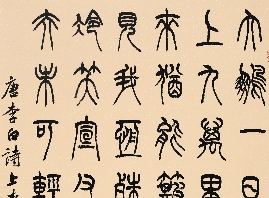 大鵬一日
上九萬里
來猶能簸
見我恆殊
冷笑宣父
夫未可輕
唐李白詩上